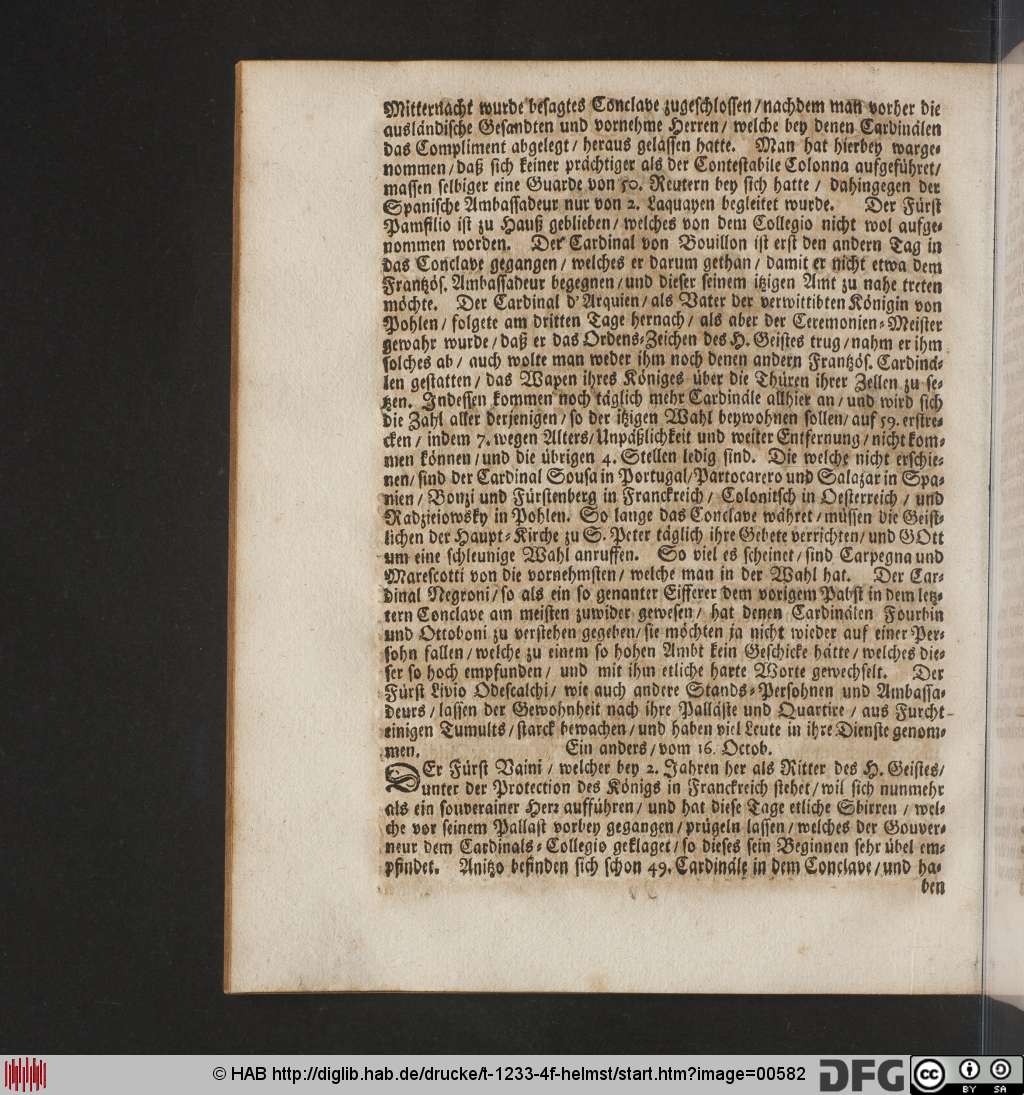 Mitternacht wurde besagtes Conclave zugeschlossen / nachdem man vorher die
ausländische Gesandten und vornehme Herren / welche bey denen Cardinälen
das Compliment abgelegt / heraus gelassen hatte. Man hat hierbey warge-
nommen / daß sich keiner prächtiger als der Contestabile Colonna aufgeführet /
massen selbiger eine Guarde von 50. Reutern bey sich hatte / dahingegen der
Spanische Ambassadeur nur von 2. Laquayen begleitet wurde. Der Fürst
Pamfilio ist zu Hauß geblieben / welches von dem Collegio nicht wol aufge-
nommen worden. Der Cardinal von Bouillon ist erst den andern Tag in
das Conclave gegangen / welches er darum gethan / damit er nicht etwa dem
Frantzös. Ambassadeur begegnen / und dieser seinem itzigen Amt zu nahe treten
möchte. Der Cardinal d'Arquien / als Vater der verwittibten Königin von
Pohlen / folgete am dritten Tage hernach / als aber der Ceremonien-Meister
gewahr wurde / daß er das Ordens-Zeichen des H. Geistes trug / nahm er ihm
solches ab / auch wolte man weder ihm noch denen andern Frantzös. Cardinä-
len gestatten / das Wapen ihres Königes über die Thüren ihrer Zellen zu se-
tzen. Indessen kommen noch täglich mehr Cardinäle allhier an / und wird sich
die Zahl aller derjenigen / so der itzigen Wahl beywohnen sollen / auf 59. erstre-
cken / indem 7. wegen Alters / Unpäßlichkeit und weiter Entfernung / nicht kom-
men können / und die übrigen 4. Stellen ledig sind. Die welche nicht erschie-
nen / sind der Cardinal Sousa in Portugal / Partocarero und Salazar in Spa-
nien / Bonzi und Fürstenberg in Franckreich / Colonitsch in Oesterreich / und
Radzieiowsky in Pohlen. So lange das Conclave währet / müssen die Geist-
lichen der Haupt-Kirche zu S. Peter täglich ihre Gebete verrichten / und GOtt
um eine schleunige Wahl anruffen. So viel es scheinet / sind Carpegna und
Marescotti von die vornehmsten / welche man in der Wahl hat. Der Car-
dinal Negroni / so als ein so genanter Eifferer dem vorigem Pabst in dem letz-
tern Conclave am meisten zuwider gewesen / hat denen Cardinälen Fourbin
und Ottoboni zu verstehen gegeben / sie möchten ja nicht wieder auf einer Per-
sohn fallen / welche zu einem so hohen Ambt kein Geschicke hätte / welches die-
ser so hoch empfunden / und mit ihm etliche harte Worte gewechselt. Der
Fürst Livio Odescalchi / wie auch andere Stands-Persohnen und Ambassa-
deurs / lassen der Gewohnheit nach ihre Palläste und Quartire / aus Furcht
einigen Tumults / starck bewachen / und haben viel Leute in ihre Dienste genom-
men. Ein anders / vom 16. Octob.
DEr Fürst Vaini / welcher bey 2. Jahren her als Ritter des H. Geistes /
unter der Protection des Königs in Franckreich stehet / wil sich nunmehr
als ein souverainer Herr aufführen / und hat diese Tage etliche Sbirren / wel-
che vor seinem Pallast vorbey gegangen / prügeln lassen / welches der Gouver-
neur dem Cardinals-Collegio geklaget / so dieses sein Beginnen sehr übel em-
pfindet. Anitzo befinden sich schon 49. Cardinäle in dem Conclave / und ha-
ben
© HAB http://diglib.hab.de/drucke/t-1233-4f-helmst/start.htm?image=00582
DFG
cc BY SA